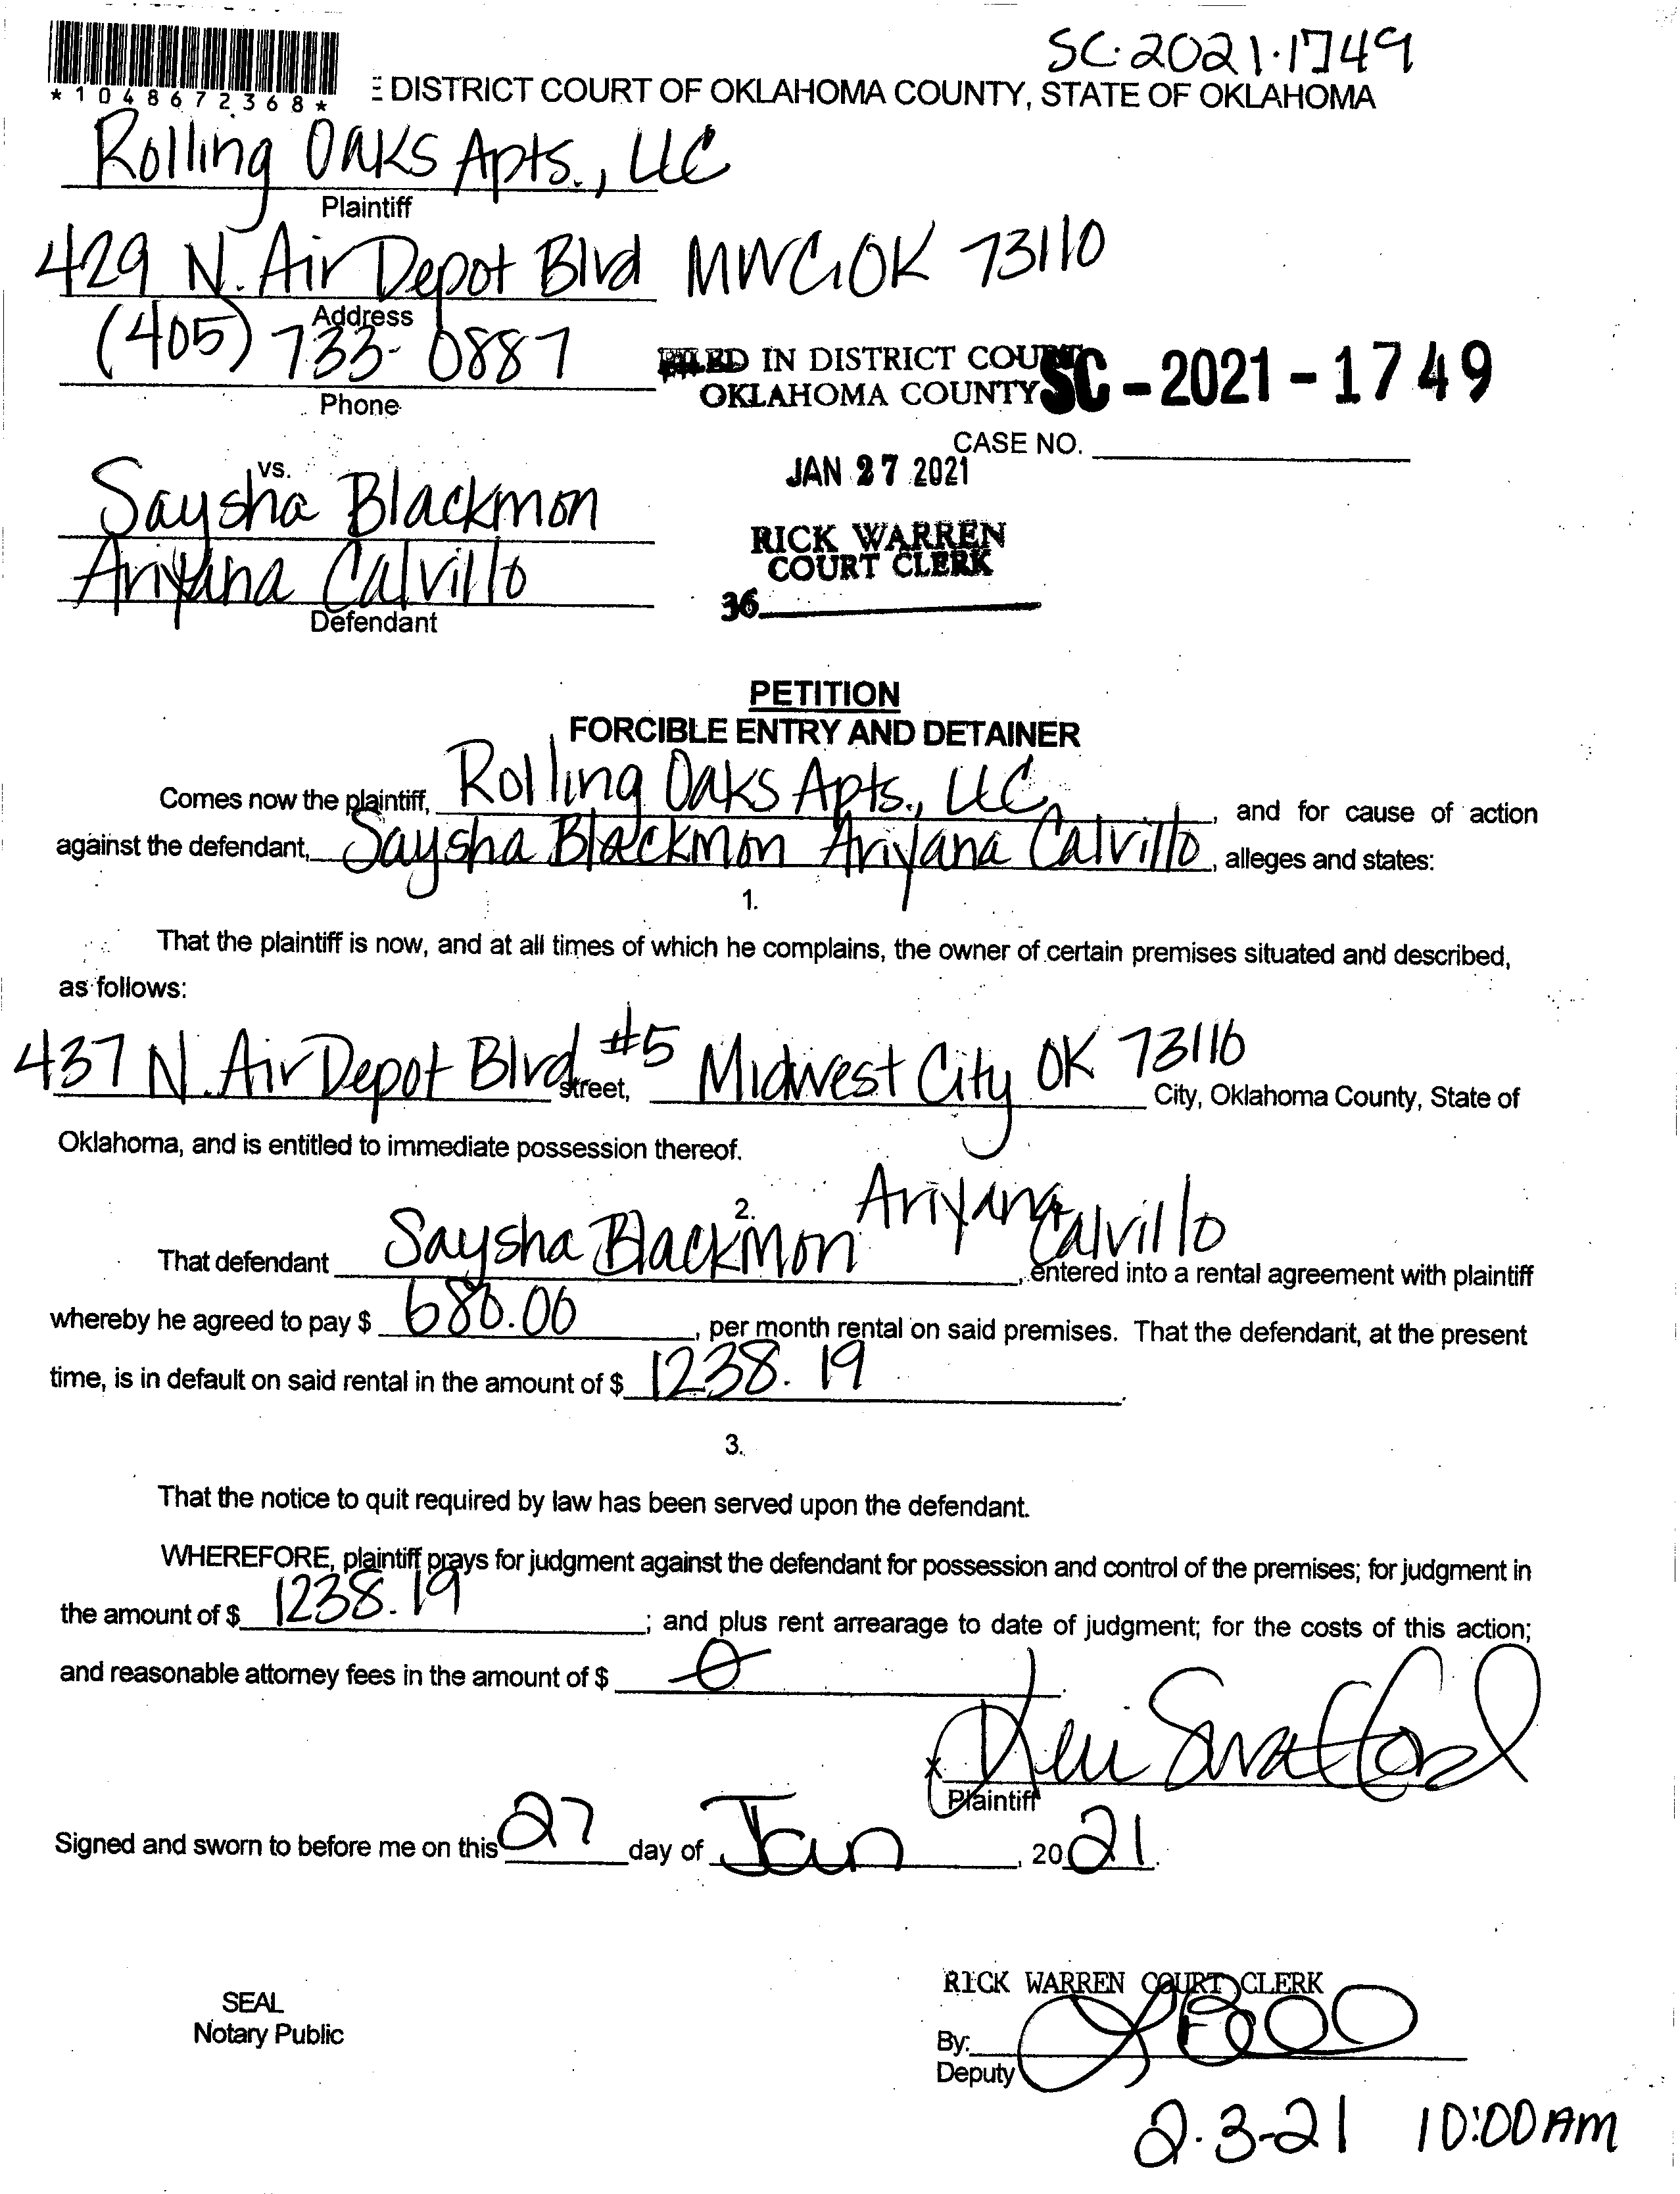 SC-2021-1749
*1048672368*
DISTRICT COURT OF OKLAHOMA COUNTY, STATE OF OKLAHOMA
Rolling Oaks Apts., LLC
Plaintiff
429 N. Air Depot Blvd MWC, OK 73110
Address
(405) 733-0887
Phone
FILED IN DISTRICT COURT
OKLAHOMA COUNTY
SC-2021-1749
CASE NO.
JAN 27 2021
RICK WARREN
COURT CLERK
36
vs.
Saysha Blackmon
Ariyana Calvillo
Defendant
PETITION
FORCIBLE ENTRY AND DETAINER
Comes now the plaintiff, Rolling Oaks Apts., LLC, and for cause of action
against the defendant, Saysha Blackmon Ariyana Calvillo, alleges and states:
1.
That the plaintiff is now, and at all times of which he complains, the owner of certain premises situated and described,
as follows:
437 N. Air Depot Blvd #5 street, Midwest City OK 73110 City, Oklahoma County, State of
Oklahoma, and is entitled to immediate possession thereof.
2.
That defendant Saysha Blackmon Ariyana Calvillo, entered into a rental agreement with plaintiff
whereby he agreed to pay $ 680.00, per month rental on said premises. That the defendant, at the present
time, is in default on said rental in the amount of $ 1238.19.
3.
That the notice to quit required by law has been served upon the defendant.
WHEREFORE, plaintiff prays for judgment against the defendant for possession and control of the premises; for judgment in
the amount of $ 1238.19; and plus rent arrearage to date of judgment; for the costs of this action;
and reasonable attorney fees in the amount of $ 0.
Plaintiff
Signed and sworn to before me on this 27 day of Jan, 2021.
SEAL
Notary Public
RICK WARREN COURT CLERK
By:
Deputy
2-3-21 10:00AM